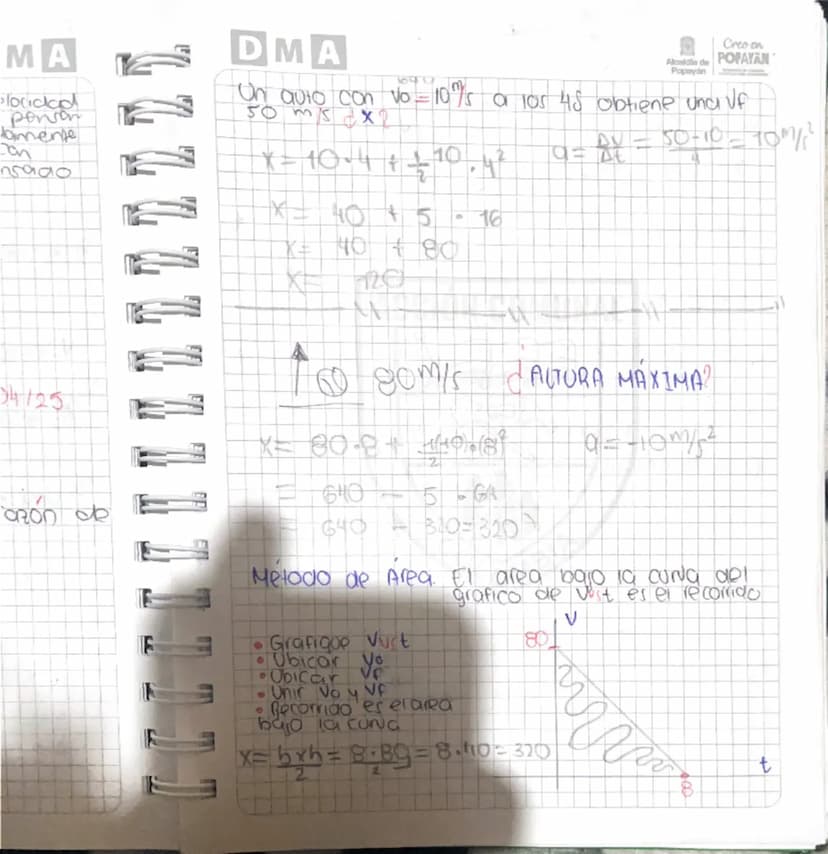 M A
DMA
Alcaldía de Popayán
Creo en POPAYÁN
pensar
nsado
04/25
azón de
Un auto con Vo = 10 m/s a los 4s obtiene una Vf
50 m/s ¿x?
x = 10 · 4 + 1/2 10 · 4² a = ΔV/Δt = 50-10/4 = 10 m/s²
x = 40 + 5 · 16
x = 40 + 80
x = 120
80 m/s ¿ALTURA MÁXIMA?
x = 80·8 + 1(-10)·(8)²/2 a = -10 m/s²
= 640 - 5 · 64
= 640 - 320 = 320
Método de Área. El area bajo la curva del
grafico de V vs t es el recorrido
• Grafique V vs t
• Ubicar Vo
• Ubicar Vf
• Unir Vo y Vf
• Recorrido es el area
bajo la curva
x = bxh/2 = 8·80/2 = 8·40 = 320
V
80
t
8